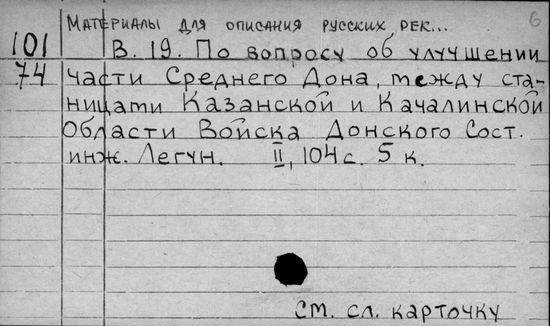 Материалы для описания русских рек... 6
101 В. 19. По вопросу об улучшении
74 части Среднего Дона, между ста-
ницами Казанской и Качалинской
Области Войска Донского Сост.
инж. Легун. II, 104 с. 5 к.
см. сл. карточку